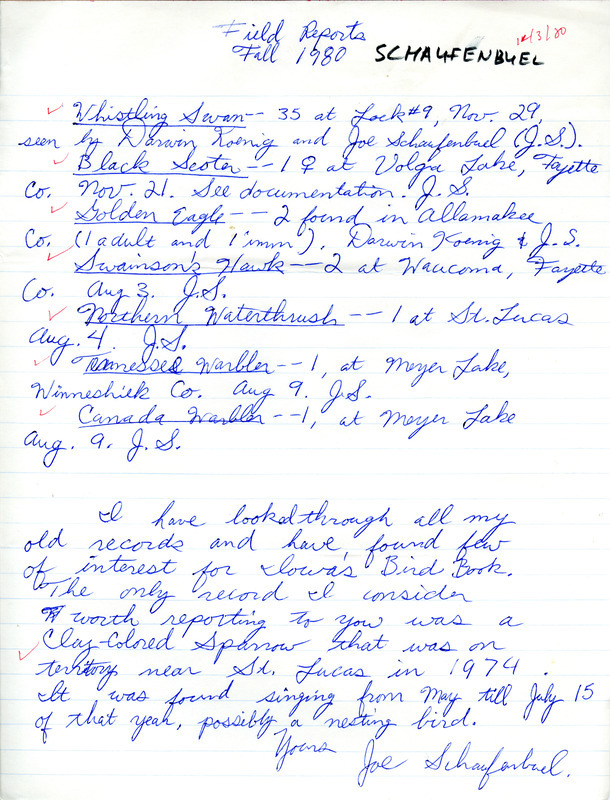 Field Reports
Fall 1980 SCHAUFENBUEL 12/3/80
Whistling Swan-- 35 at Lock #9, Nov. 29,
seen by Darwin Koenig and Joe Schaufenbuel (J.S.).
Black Scoter -- 1 ♀ at Volga Lake, Fayette
Co. Nov. 21. See documentation. J.S.
Golden Eagle -- 2 found in Allamakee
Co. (1 adult and 1 imm.). Darwin Koenig & J.S.
Swainson's Hawk -- 2 at Waucoma, Fayette
Co. Aug 3. J.S.
Northern Waterthrush -- 1 at St. Lucas
Aug. 4. J.S.
Tennessee Warbler -- 1, at Meyer Lake,
Winneshiek Co. Aug 9. J.S.
Canada Warbler --1, at Meyer Lake
Aug. 9. J.S.
I have looked through all my
old records and have found few
of interest for Iowa's Bird Book.
The only record I consider
worth reporting to you was a
Clay-Colored Sparrow that was on
territory near St. Lucas in 1974.
It was found singing from May till July 15
of that year, possibly a nesting bird.
Yours
Joe Schaufenbuel.